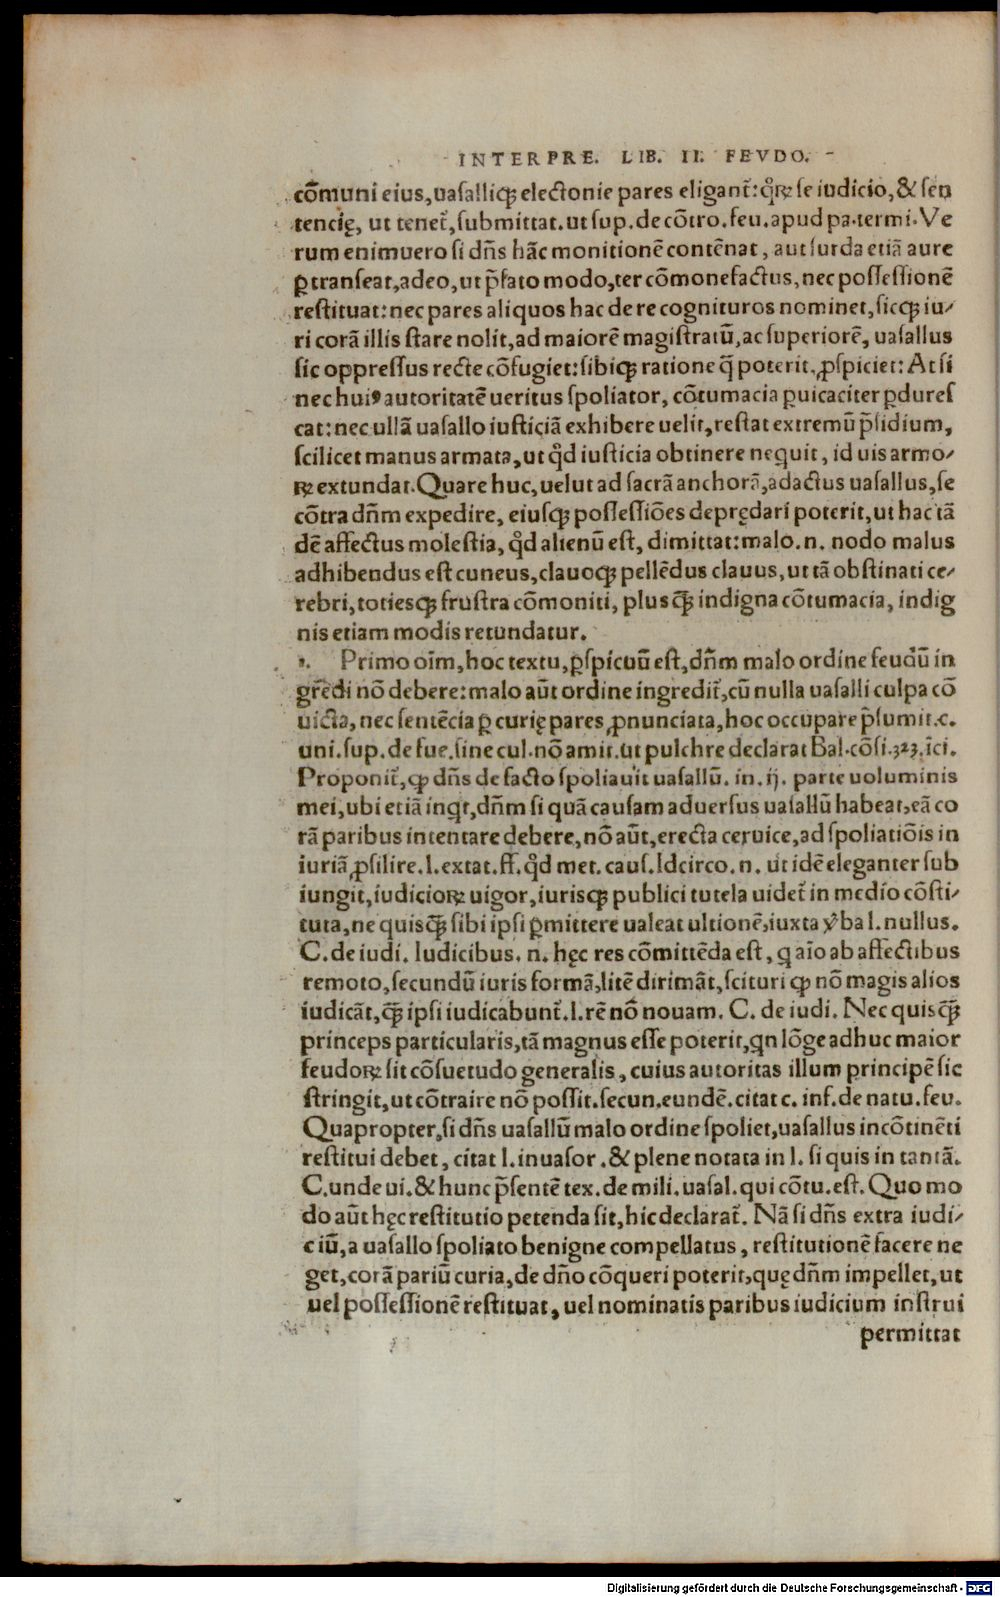 INTERPRE. LIB. II. FEVDO.
cõmuni eius, uasalliqꝫ electonie pares eligant᷑: qͦꝝ se iudicio, & sen
tencię, ut tenet᷑, submittat. ut sup. de cõtro. feu. apud pa. termi. Ve
rum enimuero si dñs hãc monitionẽ contẽnat, aut surda etiã aure
ꝑtranseat, adeo, ut p̃fato modo, ter cõmonefactus, nec possessionẽ
restituat: nec pares aliquos hac de re cognituros nominet, sicqꝫ iu⸗
ri corã illis stare nolit, ad maiorẽ magistratũ, ac superiorẽ, uasallus
sic oppressus recte cõfugiet: sibiqꝫ ratione q̃ poterit, ꝓspiciet: At si
nec huiꝰ autoritatẽ ueritus spoliator, cõtumacia ꝑuicaciter ꝑdures
cat: nec ullã uasallo iusticiã exhibere uelit, restat extremũ p̃sidium,
scilicet manus armata, ut qd̃ iusticia obtinere nequit, id uis armo⸗
ꝝ extundat. Quare huc, uelut ad sacrã anchorã, adactus uasallus, se
cõtra dñm expedire, eiusqꝫ possessiões deprędari poterit, ut hac tã
dẽ affectus molestia, qd̃ alienũ est, dimittat: malo. n. nodo malus
adhibendus est cuneus, clauoqꝫ pellẽdus clauus, ut tã obstinati ce⸗
rebri, totiesqꝫ frustra cõmoniti, plusq̃ indigna cõtumacia, indig
nis etiam modis retundatur.
1. Primo oĩm, hoc textu, ꝑspicuũ est, dñm malo ordine feudũ in
gredi nõ debere: malo aũt ordine ingredit᷑, cũ nulla uasalli culpa cõ
uicta, nec sentẽcia ꝑ curię pares ꝓnunciata, hoc occupare p̃sumit. c.
uni. sup. de fue. sine cul. nõ amit. ut pulchre declarat Bal. cõsi. 323. ĩci.
Proponit᷑, qꝙ dñs de facto spoliauit uasallũ. in. ij. parte uoluminis
mei, ubi etiã inqt, dñm si quã causam aduersus uasallũ habeat, eã co
rã paribus intentare debere, nõ aũt, erecta ceruice, ad spoliatiõis in
iuriã ꝓsilire. l. extat. ff. qd̃ met. caus. Idcirco. n. ut idẽ eleganter sub
iungit, iudicioꝝ uigor, iurisqꝫ publici tutela uidet᷑ in medio cõsti⸗
tuta, ne quisq̃ sibi ipsi ꝑmittere ualeat ultionẽ, iuxta v̾ba l. nullus.
C. de iudi. Iudicibus. n. hęc res cõmittẽda est, q aĩo ab affectibus
remoto, secundũ iuris formã, litẽ dirimãt, scituri qꝙ nõ magis alios
iudicãt, q̃ ipsi iudicabunt᷑. l. rẽ nõ nouam. C. de iudi. Nec quisq̃
princeps particularis, tã magnus esse poterit, qn lõge adhuc maior
feudoꝝ sit cõsuetudo generalis, cuius autoritas illum principẽ sic
stringit, ut cõtraire nõ possit. secun. eundẽ. citat c. inf. de natu. feu.
Quapropter, si dñs uasallũ malo ordine spoliet, uasallus incõtinẽti
restitui debet, citat l. inuasor. & plene notata in l. si quis in tantã.
C. unde ui. & hunc p̃sentẽ tex. de mili. uasal. qui cõtu. est. Quo mo
do aũt hęc restitutio petenda sit, hic declarat᷑. Nã si dñs extra iudi⸗
ciũ, a uasallo spoliato benigne compellatus, restitutionẽ facere ne
get, corã pariũ curia, de dño cõqueri poterit, quę dñm impellet, ut
uel possessionẽ restituat, uel nominatis paribus iudicium instrui
permittat
Digitalisierung gefördert durch die Deutsche Forschungsgemeinschaft - DFG